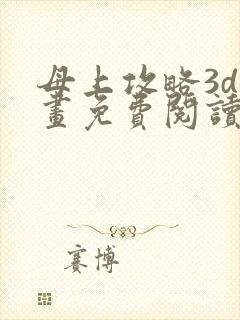 母上攻略3d
畫免費閱讀
賽博